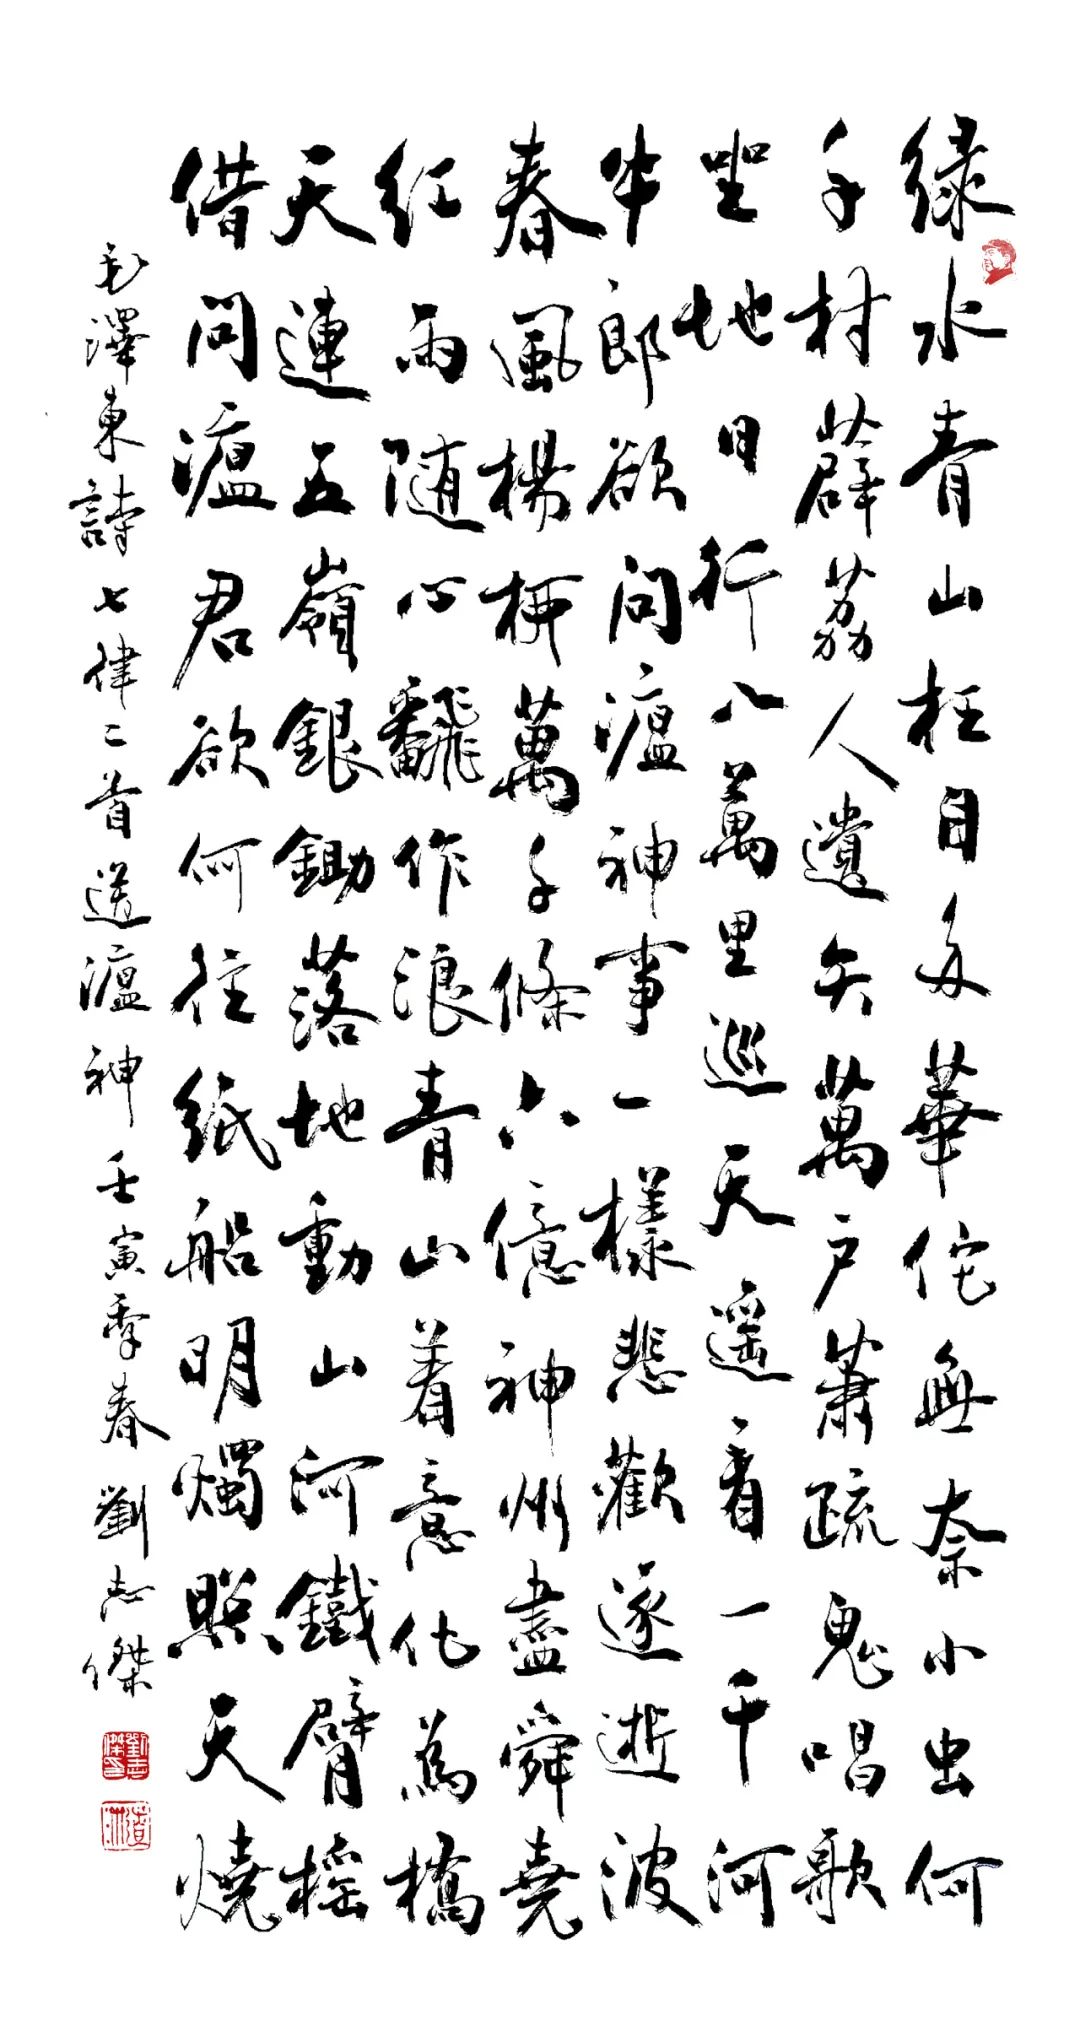 緑水青山枉自多華佗無奈小虫何
千村薜荔人遺矢萬户蕭疏鬼唱歌
坐地日行八萬里巡天遥看一千河
牛郎欲问瘟神事一樣悲歡逐逝波
春風楊柳萬千條六億神州盡舜堯
红雨随心飜作浪青山着意化為橋
天連五嶺銀鋤落地動山河鐵臂摇
借问瘟君欲何往纸船明燭照天燒
毛澤東詩七律二首送瘟神壬寅季春劉志傑